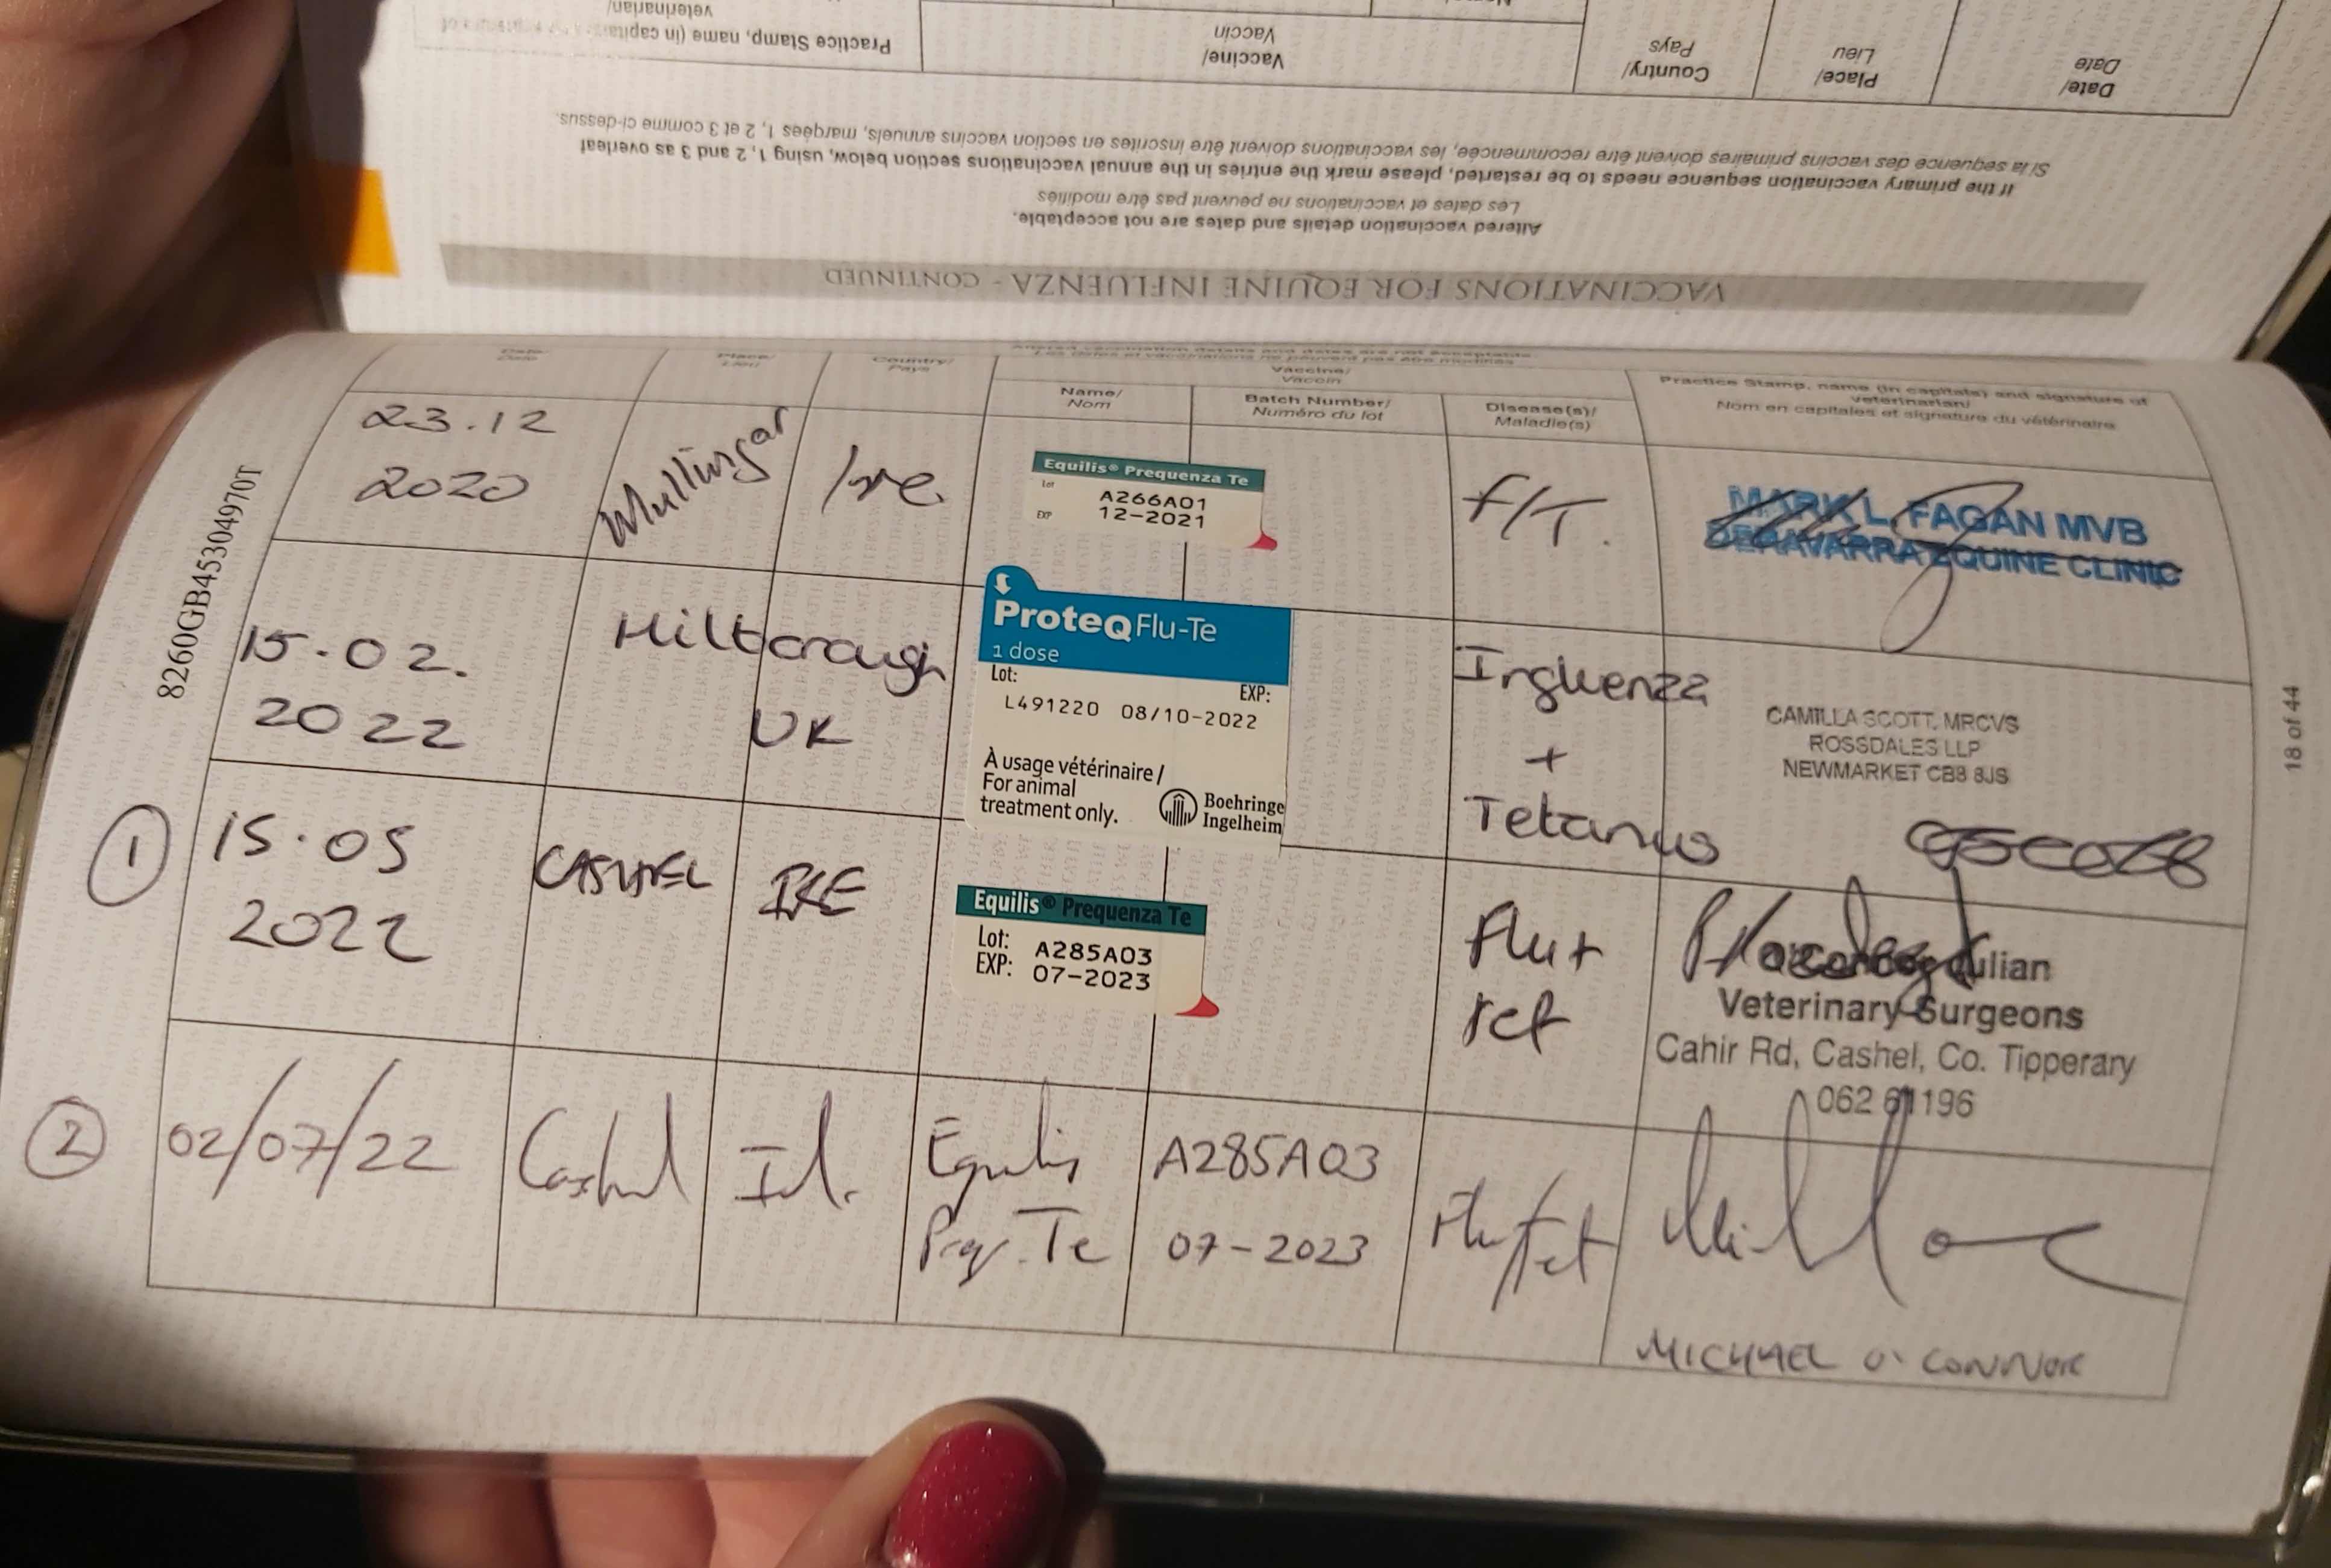 Practice Stamp, name (in capitals
veterinarian/
Vaccine/
Vaccin
Country/
Pays
Place/
Lieu
Date/
Date
Si la séquence des vaccins primaires doivent être recommencée, les vaccinations doivent être inscrites en section vaccins annuels, marqées 1, 2 et 3 comme ci-dessus.
If the primary vaccination sequence needs to be restarted, please mark the entries in the annual vaccinations section below, using 1, 2 and 3 as overleaf
Les dates et vaccinations ne peuvent pas être modifiés
Altered vaccination details and dates are not acceptable.
VACCINATIONS FOR EQUINE INFLUENZA - CONTINUED
Altered vaccination details and dates are not acceptable.
Les dates et vaccinations ne peuvent pas être modifiés
Date/
Date
Place/
Lieu
Country/
Pays
Vaccine/
Vaccin
Name/
Nom
Batch Number/
Numéro du lot
Disease(s)/
Maladie(s)
Practice Stamp, name (in capitals) and signature of
veterinarian/
Nom en capitales et signature du vétérinaire
23.12
2020
Mullingar
Ire
Equilis® Prequenza Te
Lot
A266A01
EXP
12-2021
F/T.
MARK L. FAGAN MVB
DERAVARRA EQUINE CLINIC
15.02.
2022
Hilborough
UK
ProteqFlu-Te
1 dose
Lot:
EXP:
L491220 08/10-2022
À usage vétérinaire/
For animal
treatment only.
Boehringe
Ingelheim
Influenza
+
Tetanus
CAMILLA SCOTT, MRCVS
ROSSDALES LLP
NEWMARKET CB8 8JS
1
15.05
2022
CASHEL
IRE
Equilis® Prequenza Te
Lot: A285A03
EXP: 07-2023
Flu +
Tet
Julian
Veterinary Surgeons
Cahir Rd, Cashel, Co. Tipperary
062 61196
2
02/07/22
Cashel
Irl.
Equilis
Preq. Te
A285A03
07-2023
Flu/Tet
MICHAEL O'CONNOR
8260GB45304970T
18 of 44